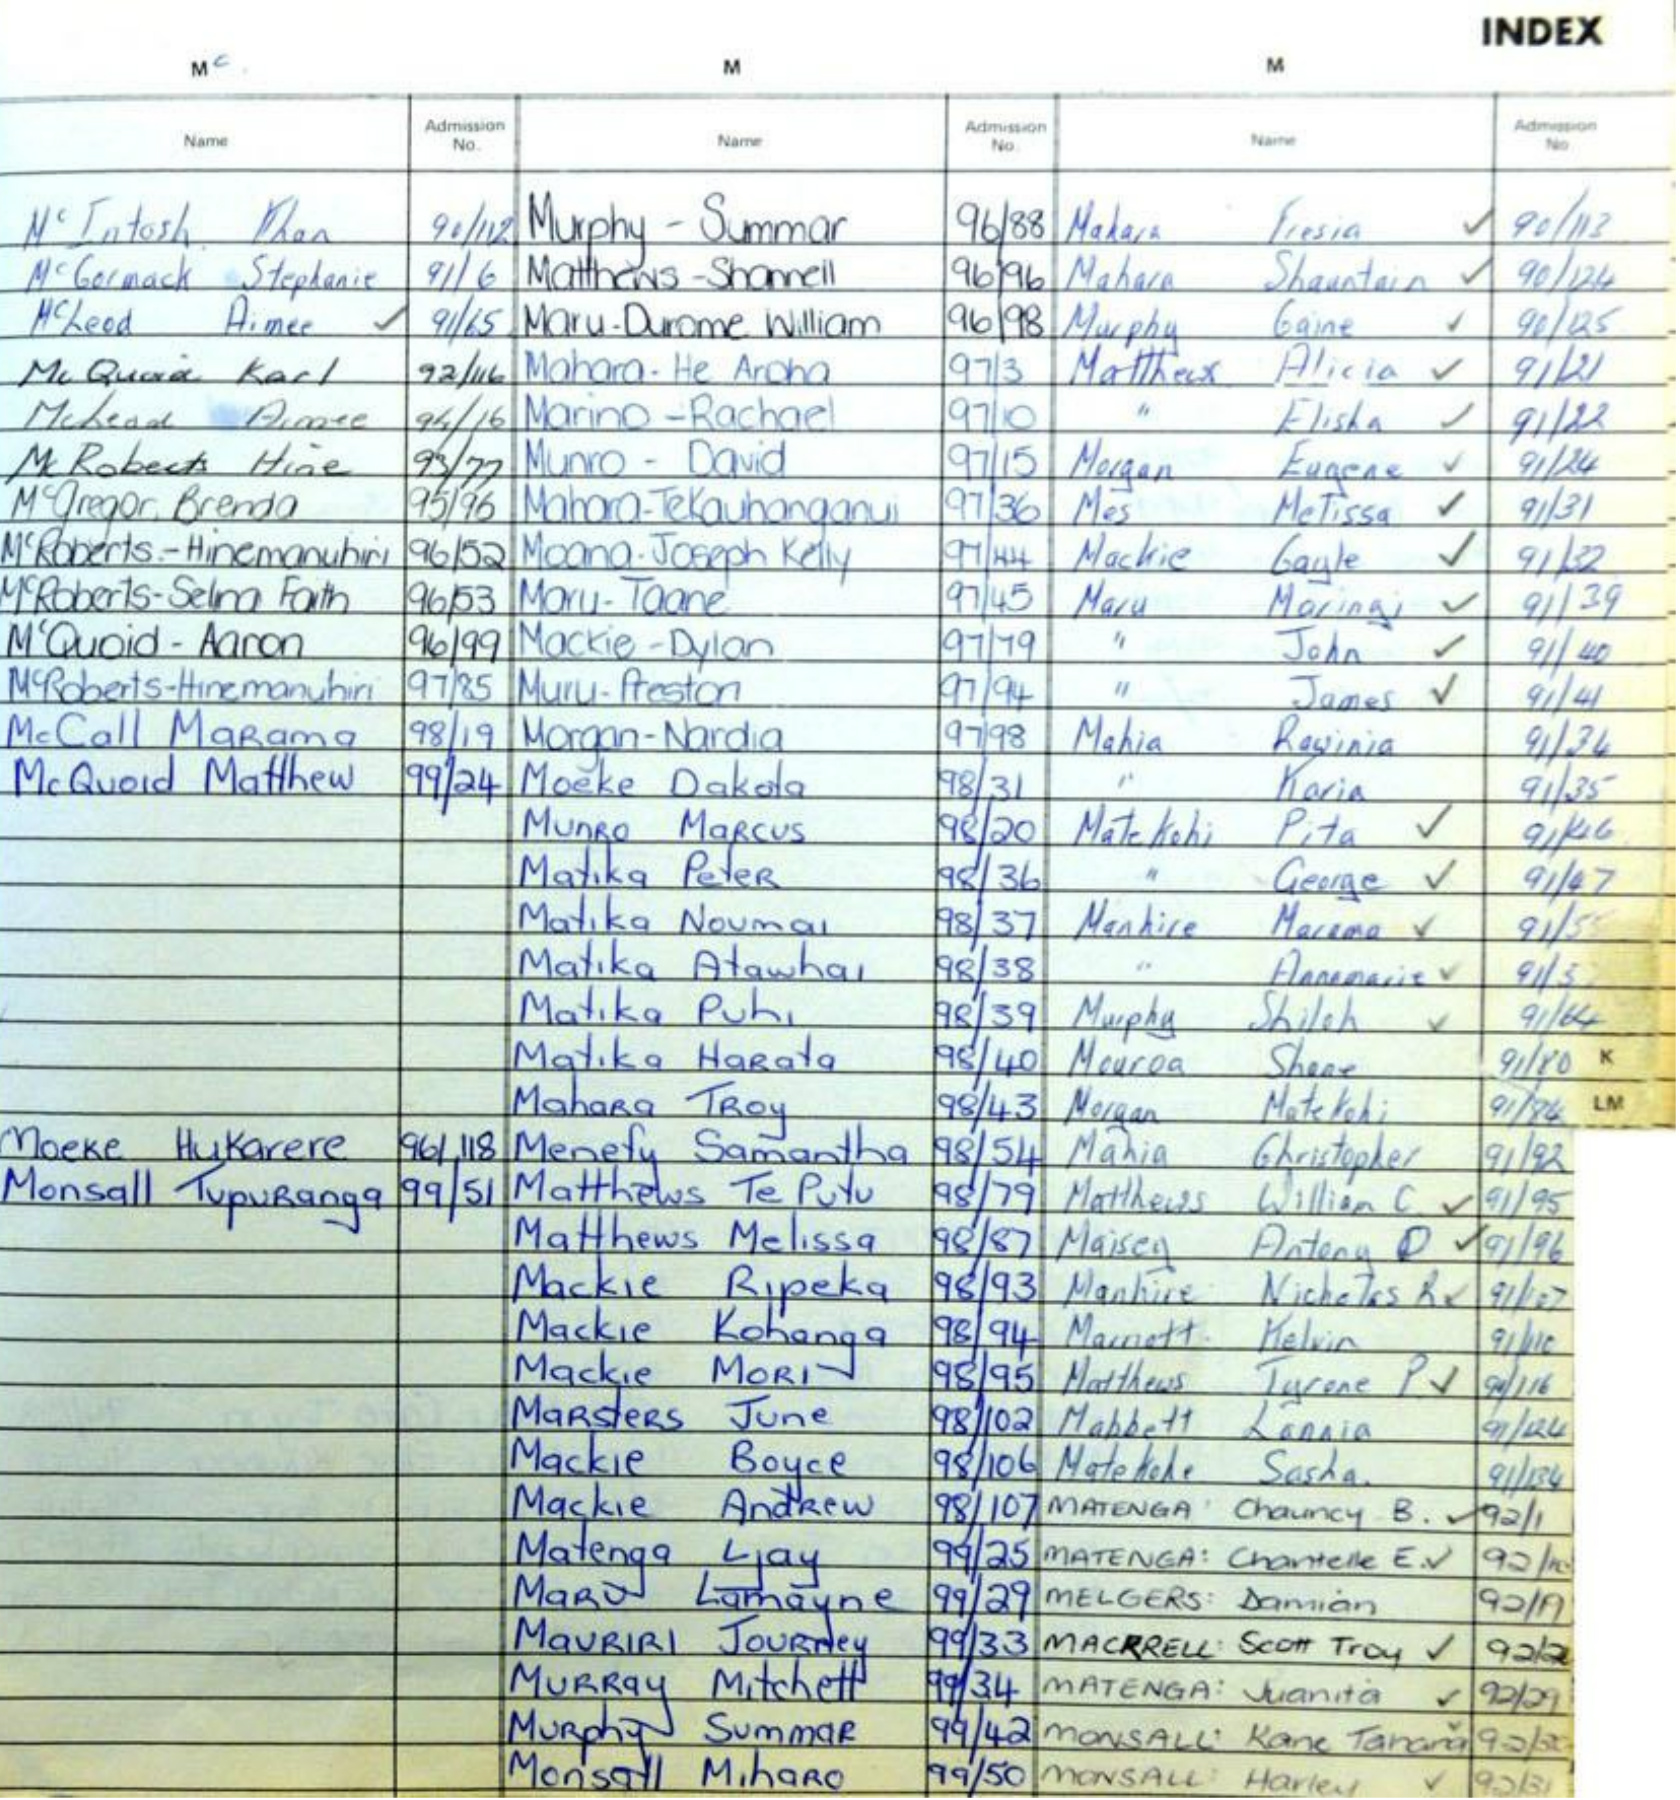 INDEX
Mc M M
Name Admission No. Name Admission No. Name Admission No
McIntosh Khan 90/112 Murphy - Summar 96/88 Mahara Fresia ✓ 90/113
McCormack Stephanie 91/6 Matthews - Shannell 96/96 Mahara Shauntain ✓ 90/124
McLeod Aimee ✓ 91/65 Maru-Durome William 96/98 Murphy Gaine ✓ 90/125
McQuoid Karl 92/116 Mahara - He Aroha 97/3 Matthews Alicia ✓ 91/21
McLeod Aimee 94/16 Marino - Rachael 97/10 " Elisha ✓ 91/22
McRoberts Hine 93/77 Munro - David 97/15 Morgan Eugene ✓ 91/24
McGregor, Brenda 95/96 Mahara-TeKauhanganui 97/36 Mes Melissa ✓ 91/31
McRoberts - Hinemanuhiri 96/52 Moana-Joseph Kelly 97/44 Mackie Gayle ✓ 91/32
McRoberts-Selina Faith 96/53 Maru-Taane 97/45 Maru Maringi ✓ 91/39
McQuoid - Aaron 96/99 Mackie - Dylan 97/79 " John ✓ 91/40
McRoberts-Hinemanuhiri 97/85 Muru-Preston 97/94 " James ✓ 91/41
McCall Marama 98/19 Morgan-Nardia 97/98 Mahia Rawinia 91/34
McQuoid Matthew 99/24 Moeke Dakota 98/31 " Karia 91/35
Munro Marcus 98/20 Matekohi Pita ✓ 91/46
Matika Peter 98/36 " George ✓ 91/47
Matika Noumai 98/37 Manhire Marama ✓
Matika Atawhai 98/38 " Annemarie ✓
Matika Puhi 98/39 Murphy Shiloh ✓ 91/64
Matika Harata 98/40 Mouroa Shane 91/80 K
Mahara Troy 98/43 Morgan Matekohi LM
Moeke Hukarere 96/118 Menefy Samantha 98/54 Mahia Christopher 91/92
Monsall Tupuranga 99/51 Matthews Te Putu 98/79 Matthews William C. ✓ 91/95
Matthews Melissa 98/87 Maisey Antony D ✓ 91/96
Mackie Ripeka 98/93 Manhire Nicholas R ✓ 91/107
Mackie Kohanga 98/94 Marnott Kelvin 91/110
Mackie Mori 98/95 Matthews Tyrone P ✓ 91/116
Marsters June 98/102 Mabbett Lannia 91/124
Mackie Boyce 98/106 Matekohe Sasha. 91/134
Mackie Andrew 98/107 MATENGA: Chauncy B. ✓ 92/1
Matenga Ljay 99/25 MATENGA: Chantelle E. ✓
Maru Lamayne 99/29 MELGERS: Damian 92/19
Mauriri Journey 99/33 MACRRELL: Scott Troy ✓
Murray Mitchell 99/34 MATENGA: Juanita ✓ 92/29
Murphy Summar 99/42 MONSALL: Kane
Monsall Miharo 99/50 MONSALL: Harley ✓ 92/31